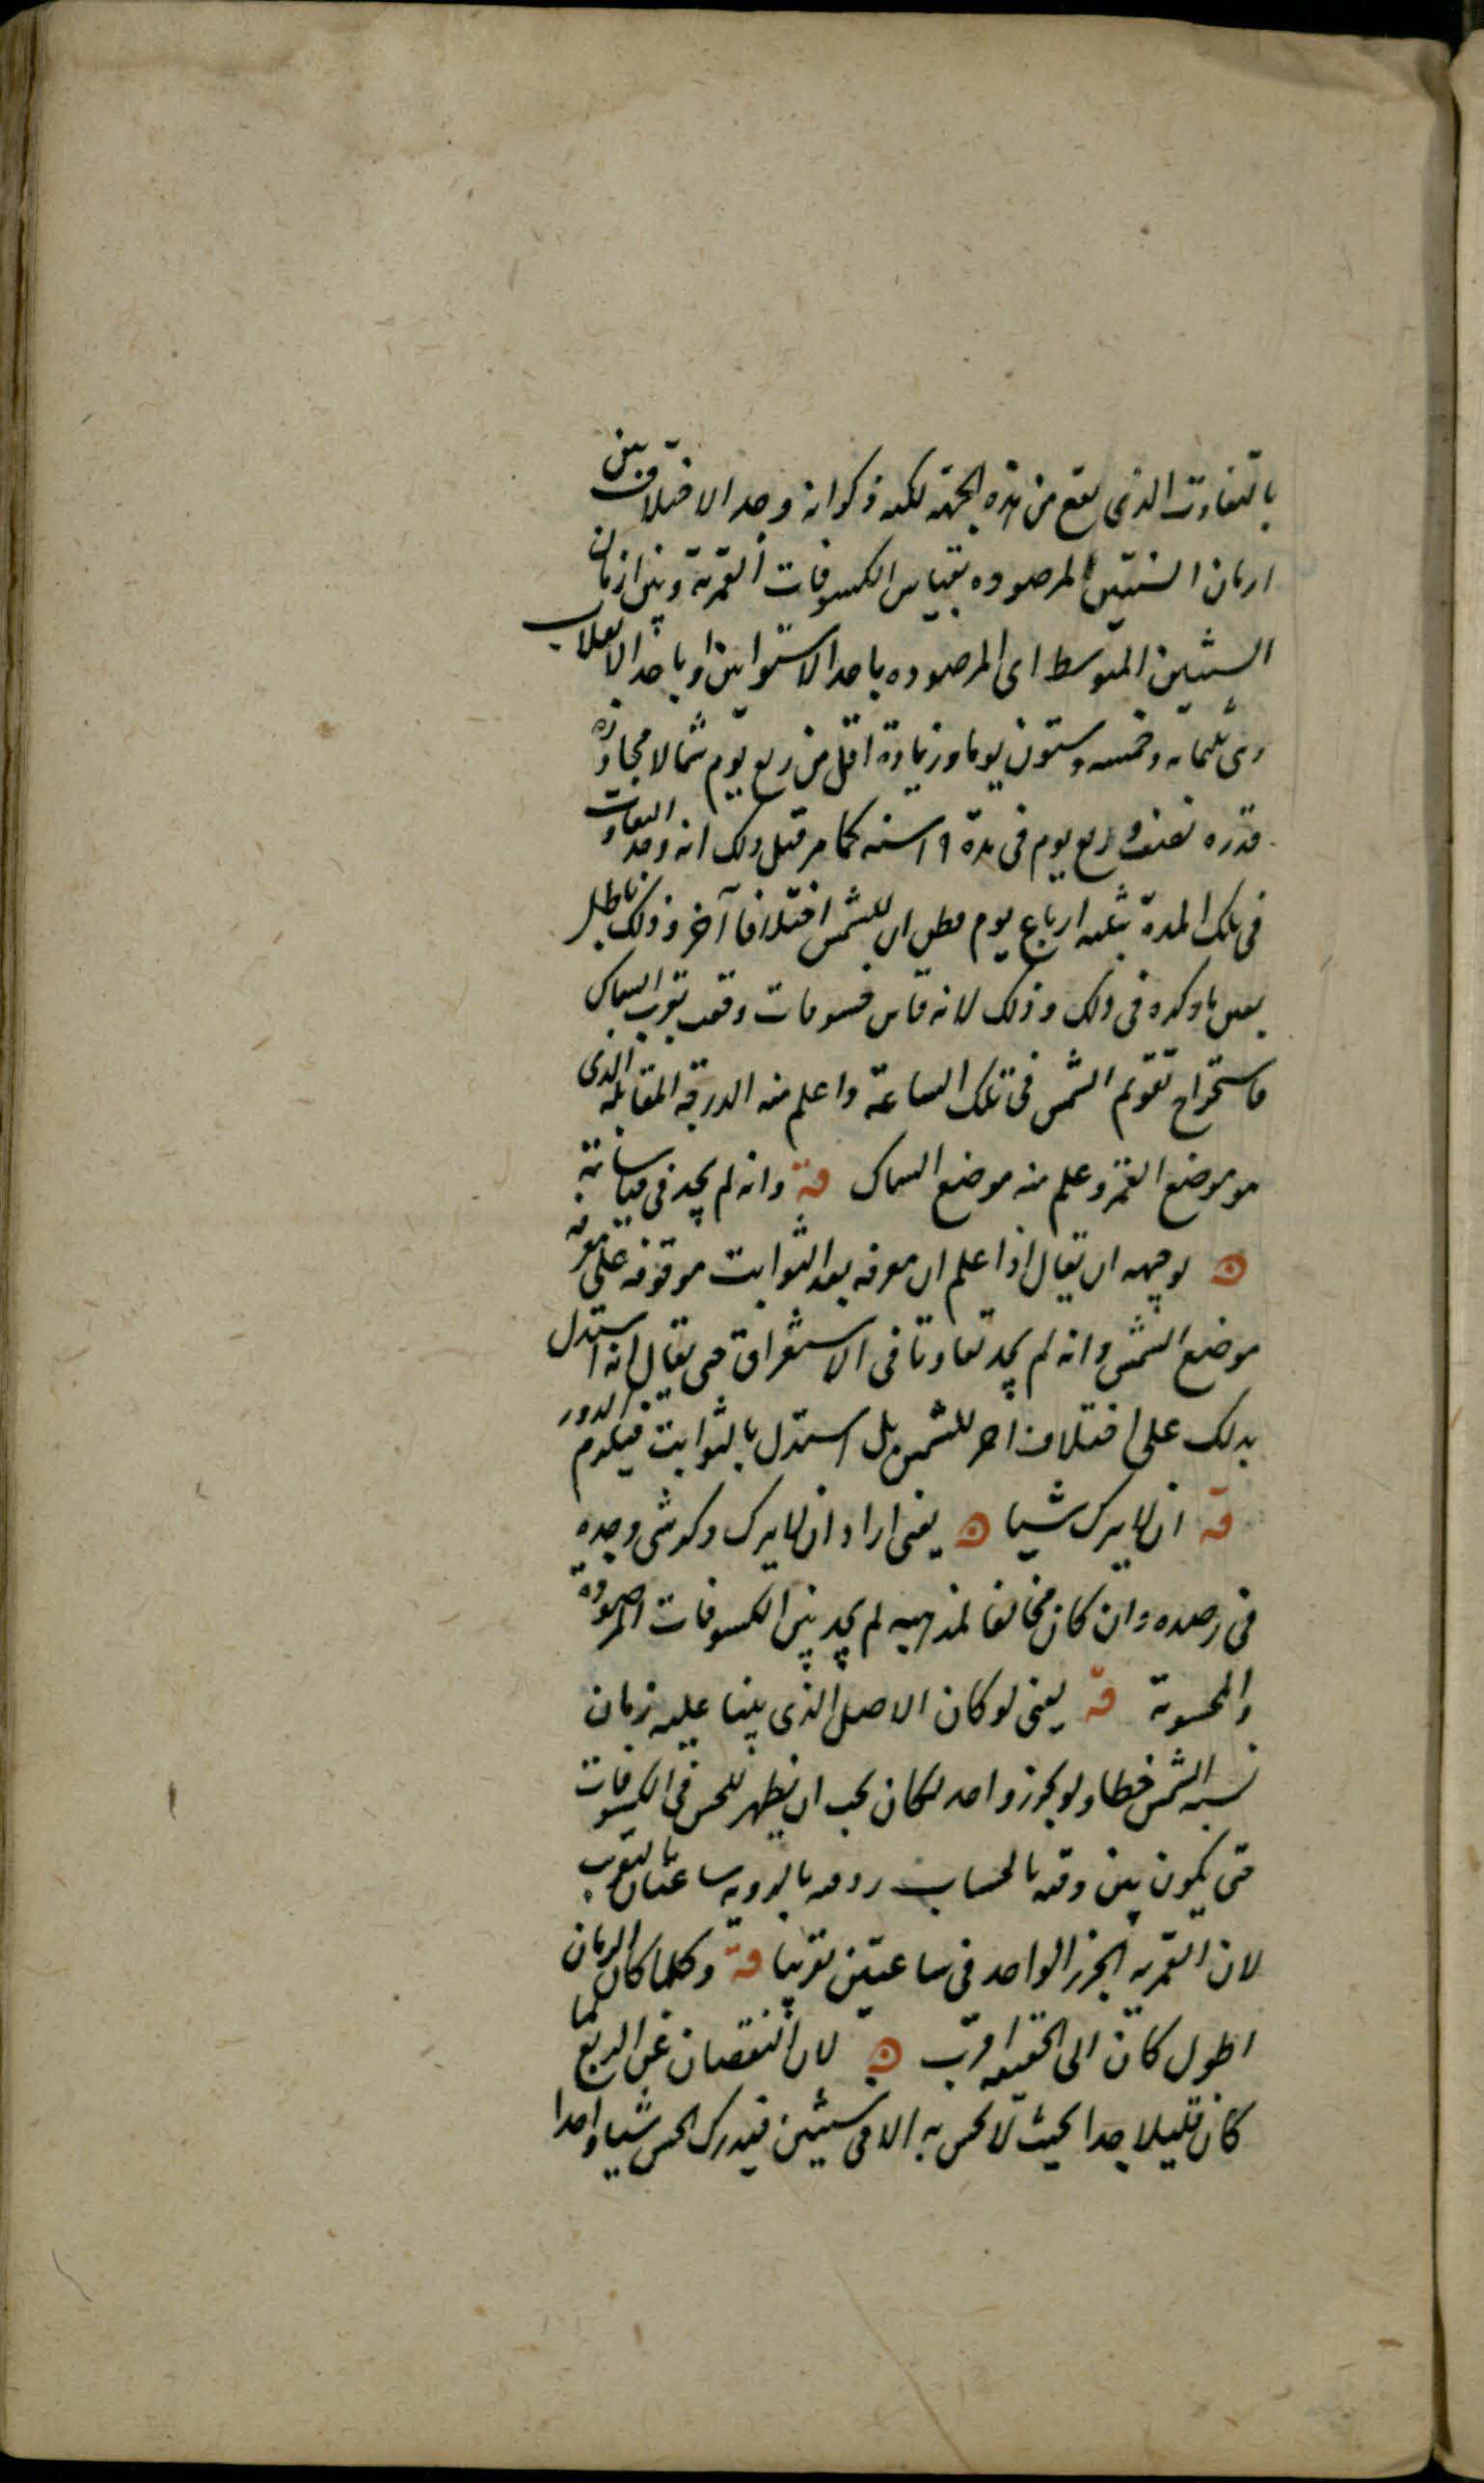 بالتفاوت الذى يقع من هذه الجهة لكنه ذكر انه وجد الاختلاف بين
ازمان السنين المرصوده بقياس الكسوفات القمرية وبين ازمان
السنين المتوسط اى المرصوده باحد الاستوايين او باحد الانقلاب
وهى ثلثمائه وخمسه وستون يوما وزيادة اقل من ربع يوم شمالا مجاوزه
قدره نصف وربع يوم فى مدة ١٩ سنه كما مر قبل ذلك انه وجد التفاوت
فى تلك المدة بثلثه ارباع يوم فظن ان للشمس اختلافا آخر وذلك باطل
بعين ما ذكره فى ذلك وذلك لانه قاس خسوفات وقعت بقرب السماك
فاستخراج تقويم الشمس فى تلك الساعة واعلم منه الدرجة المقابله الذى
هو موضع القمر وعلم منه موضع السماك قه وانه لم يجد فى قياساته
توجيهه ان يقال اذا علم ان معرفه بعد الثوابت موقوفه على معرفه
موضع الشمس وانه لم يجد تفاوتا فى الاستغراق حتى يقال انه استدل
بذلك على اختلاف اخر للشمس بل استدل بالثوابت فيلزم الدور
قه ان لا يترك شيا يعنى اراد ان لا يترك ذكر شى وجده
فى رصده وان كان مخالفا لمذهبه لم يجد بين الكسوفات المرصوده
والمحسوبة قه يعنى لو كان الاصل الذى بينا عليه زمان
نسبه الشمس خطا ولو بجزء واحد لكان يجب ان يظهر للحس فى الكسوفات
حتى يكون بين وقته بالحساب ووقته بالرويه ساعتان بالتقريب
لان القمر به الجزء الواحد فى ساعتين تقريبا قه وكلما كان الزمان
اطول كان الى الحقيقه اقرب لان النقصان عن الربع لما
كان قليلا جدا بحيث لا يحس به الا فى سنين فيدرك الحس شيا واحدا